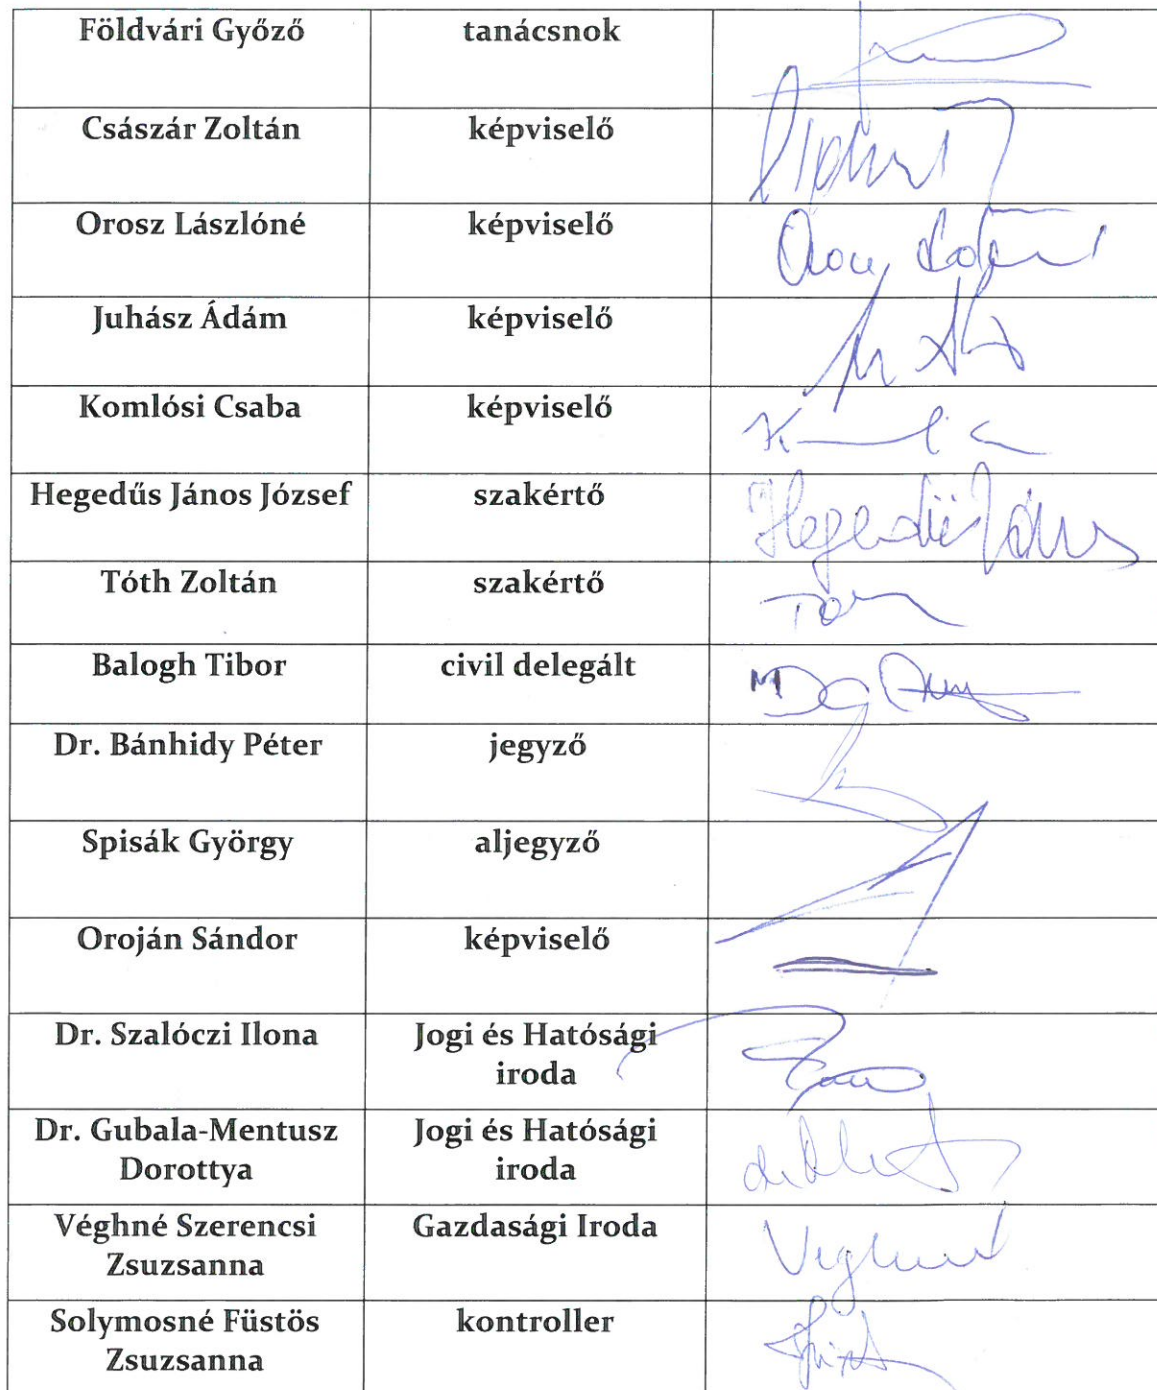 Földvári Győző tanácsnok
Császár Zoltán képviselő
Orosz Lászlóné képviselő
Juhász Ádám képviselő
Komlósi Csaba képviselő
Hegedűs János József szakértő Hegedűs János
Tóth Zoltán szakértő Tóth
Balogh Tibor civil delegált
Dr. Bánhidy Péter jegyző
Spisák György aljegyző
Oroján Sándor képviselő
Dr. Szalóczi Ilona Jogi és Hatósági
iroda
Dr. Gubala-Mentusz Jogi és Hatósági
Dorottya iroda
Véghné Szerencsi Gazdasági Iroda Véghné
Zsuzsanna
Solymosné Füstös kontroller
Zsuzsanna